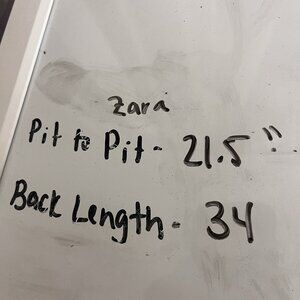 Zara
Pit to Pit - 21.5"
Back Length - 34